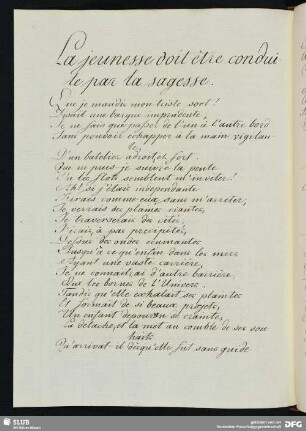 La jeunesse doit être condui
te par la sagesse.
Que je maudis mon triste sort!
Disait une barque imprudente,
Je ne fais que passer de l'un à l'autre bord
Sans pouvoir échapper à la main vigilan
te
D'un batelier adroit et fort.
Que ne puis-je suivre la pente
Où les flots semblent m'inviter!
Ah! si j'étais indépendante
J'irais comme eux, sans m'arrêter,
Je verrais des plaines riantes,
Je traverserais des cités,
J'irais, à pas précipités,
Dessus des ondes écumantes
Jusqu'à ce qu'enfin dans les mers
Ayant une vaste carrière,
Je ne connaitrais d'autre barrière,
Que les bornes de l'Univers.
Tandis qu'elle exhalait ses plaintes
Et formait de si beaux projets,
Un enfant dépourvu de crainte,
La détache, et la met au comble de ses sou
haits
Qu'arrivat-il dès qu'elle fut sans guide
SLUB
DFG